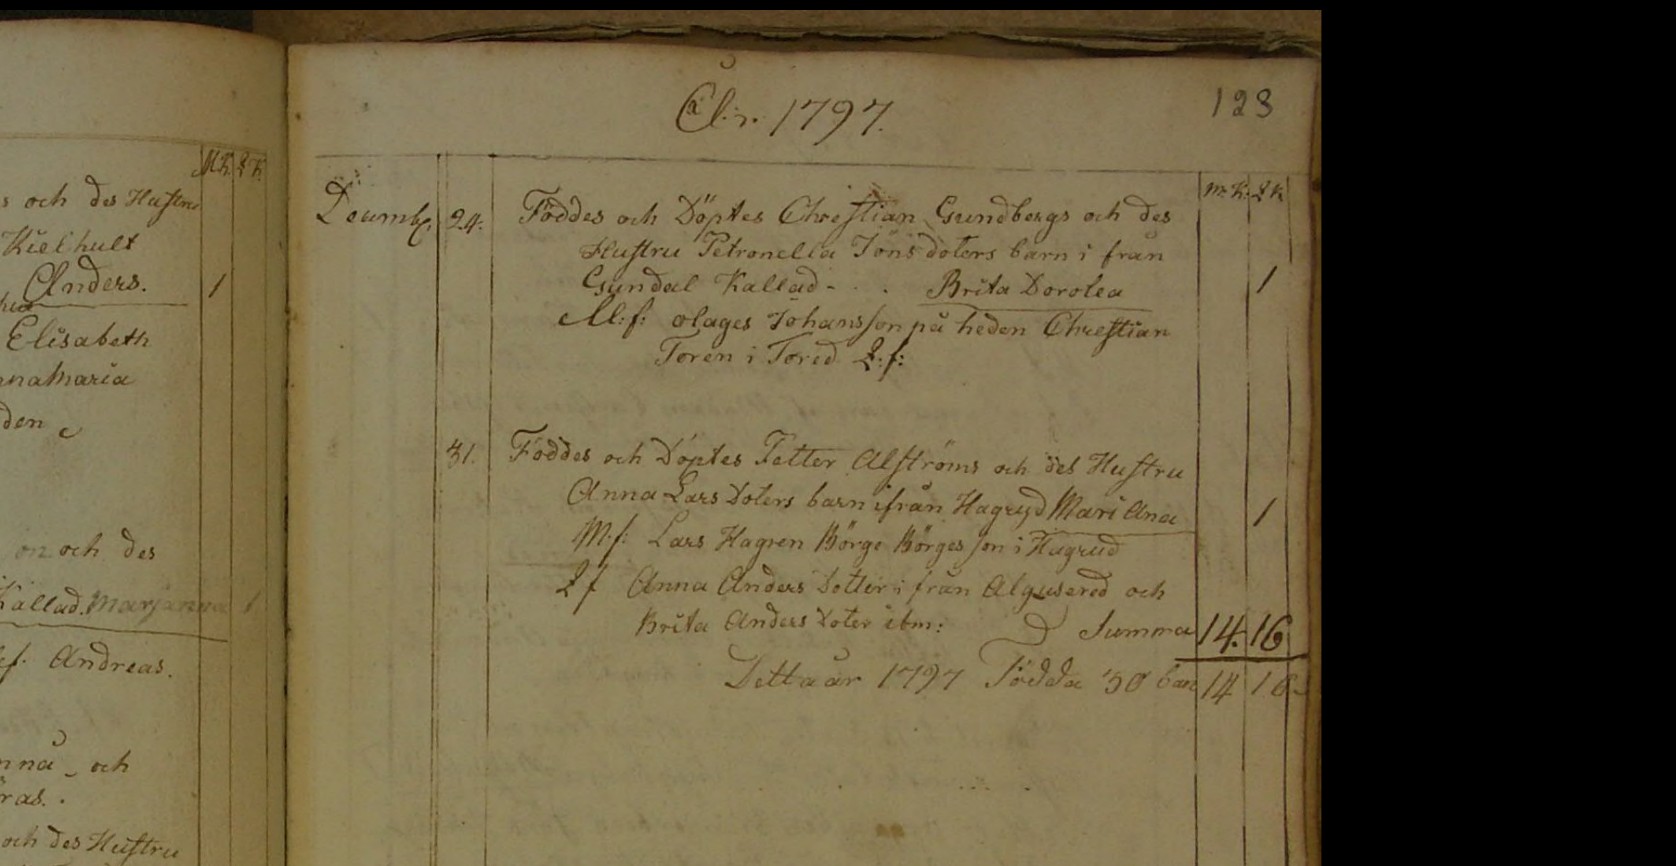 M K. Q K.
s och des Hustru
Kielhult
Anders. 1
Elisabeth
nnaMaria
den
on och des
Kallad. Marjanna 1
ef. Andreas.
nna och
ras.
och des Hustru
123
Åhr. 1797.
m: K: Q K
Decembr. 24. Föddes och Döptes Chrestian Gundbergs och des
Hustru Petronella Jöns doters barn i från
Gundal Kallad - . . Brita Dorotea 1
M: f: olages Johansson på heden Chrestian
Toren i Torid Q: f:
31. Föddes och Döptes Petter Alströms och des Hustru
Anna Lars Doters barn ifrån Hagryd Mari Ana 1
M: f: Lars Hagren Börge Börges son i Hagrud
Q f Anna Anders Dotter i från Algusered och
Brita Anders Doter ibm: Summa 14. 16
Detta år 1797 Födda 30 ban 14 16